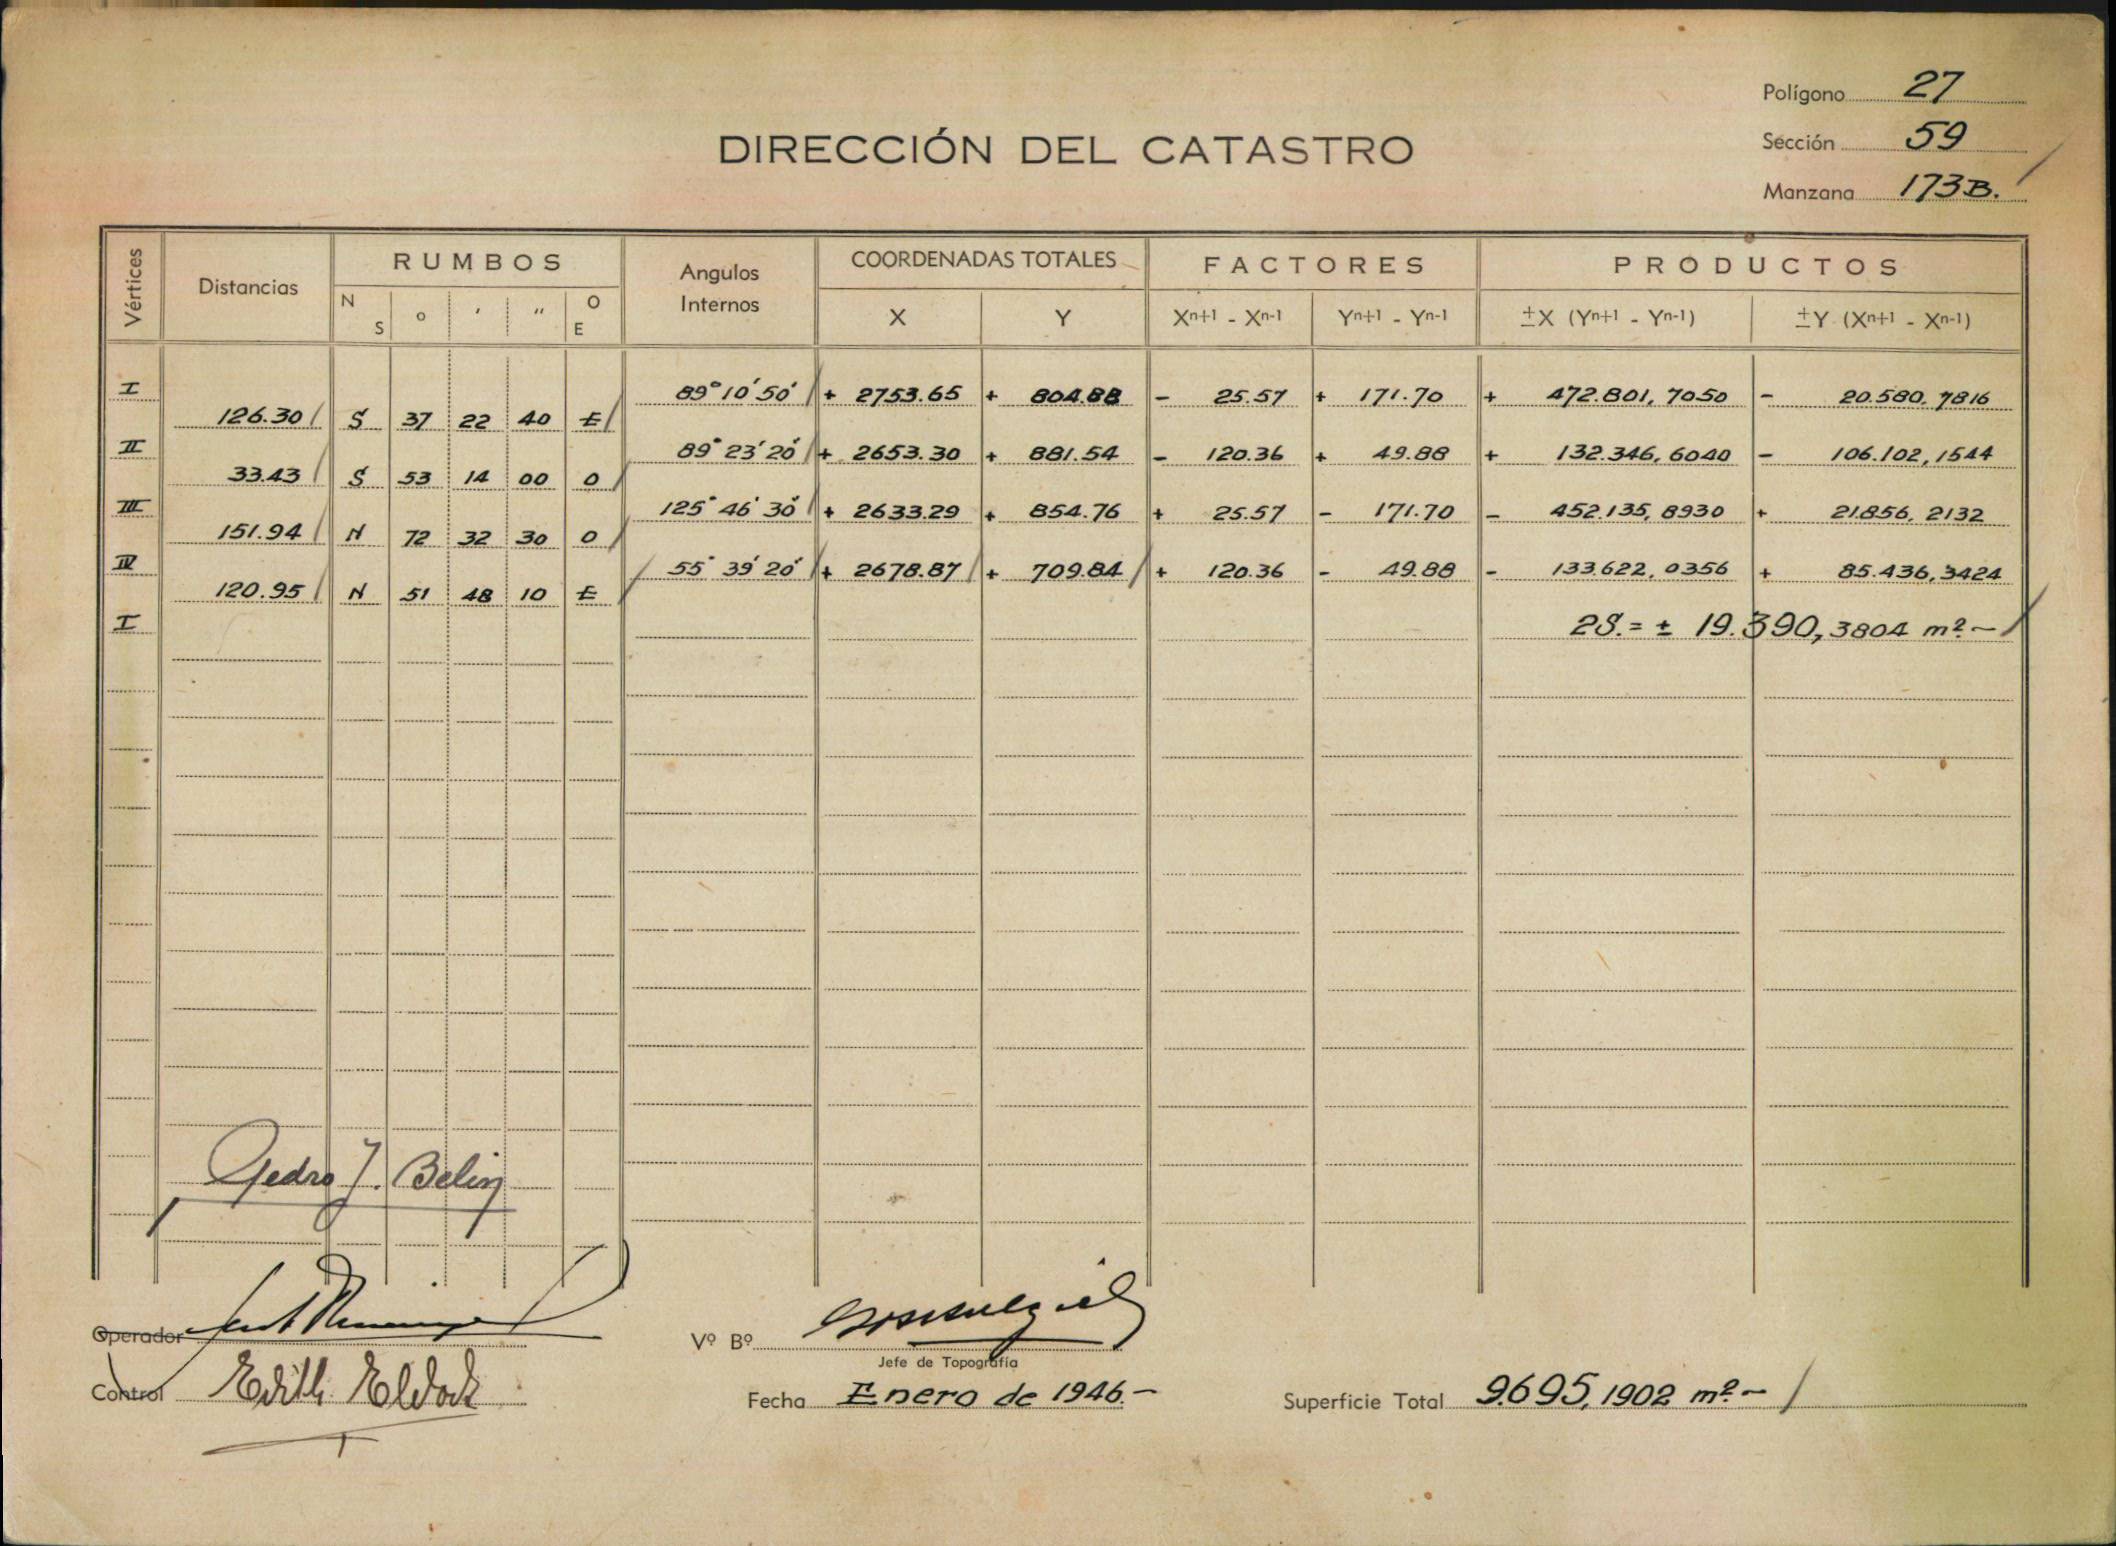 Polígono 27
DIRECCIÓN DEL CATASTRO
Sección 59
Manzana 173B.
Vértices Distancias RUMBOS Angulos Internos COORDENADAS TOTALES FACTORES PRODUCTOS
N S ° ' " O E X Y Xn+1 - Xn-1 Yn+1 - Yn-1 ±X (Yn+1 - Yn-1) ±Y (Xn+1 - Xn-1)
I 89° 10' 50' + 2753.65 + 804.88 - 25.57 + 171.70 + 472.801,7050 - 20.580.7816
126.30 S 37 22 40 E
II 89° 23' 20' + 2653.30 + 881.54 - 120.36 + 49.88 + 132.346,6040 - 106.102,1544
33.43 S 53 14 00 O
III 125° 46' 30' + 2633.29 + 854.76 + 25.57 - 171.70 - 452.135,8930 + 21.856,2132
151.94 N 72 32 30 O
IV 55° 39' 20' + 2678.87 + 709.84 + 120.36 - 49.88 - 133.622,0356 + 85.436,3424
120.95 N 51 48 10 E
I 2S.= ± 19.390,3804 m².-
Pedro J. Belin
Operador
Vº Bº
Jefe de Topografía
Control Edith
Fecha Enero de 1946.-
Superficie Total 9.695,1902 m².-